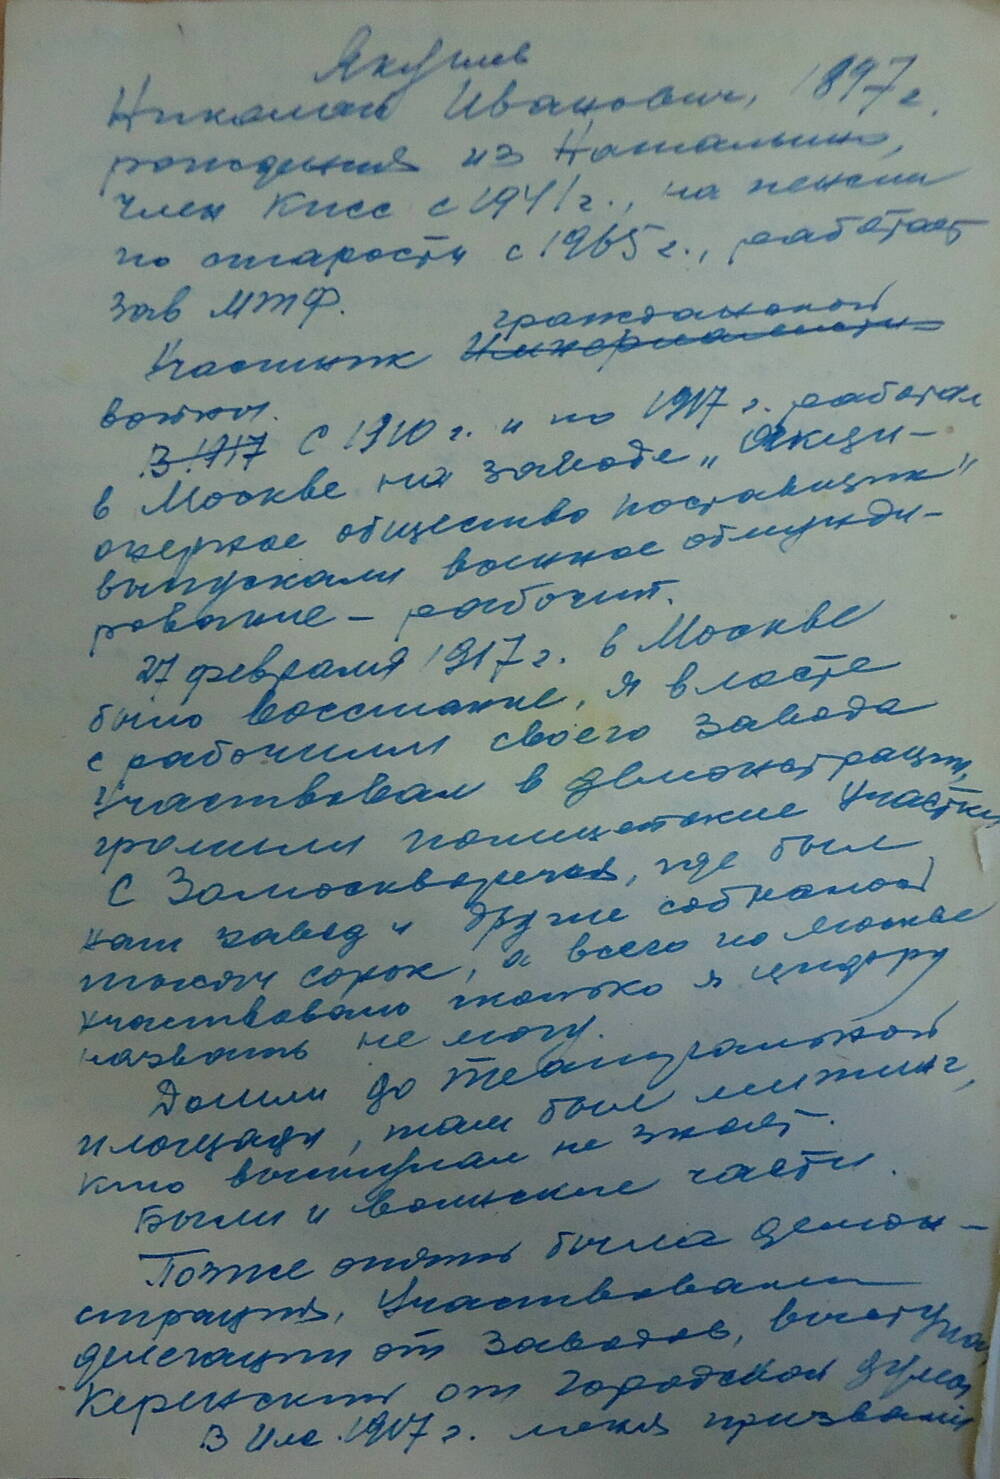 Якушев
Николай Иванович, 1897 г.
рождения из Натальино,
член КПСС с 1941 г., на пенсии
по старости с 1965 г., работает
зав МТФ.
гражданской
Участник Империалисти
войны.
В 1917 С 1910 г. и по 1917 г. работал
в Москве на заводе „Акци-
онерное общество поставщик"
выпускали военное обмунди-
рование – рабочим.
27 февраля 1917 г. в Москве
было восстание, я власте
с рабочими своего завода
участвовал в демонстрации,
громили полицейские участки
С Замоскворечья, где был
наш завод и другие собралось
тысяч сорок, а всего по Москве
участвовало сколько я цифру
назвать не могу.
Дошли до Театральной
площади, там был митинг,
кто выступал не знает.
Были и воинские части.
Позже опять была демон-
страция, Участвовали
делегации от заводов, выступал
Керенский от городской думы
В 1917 г. меня призвали